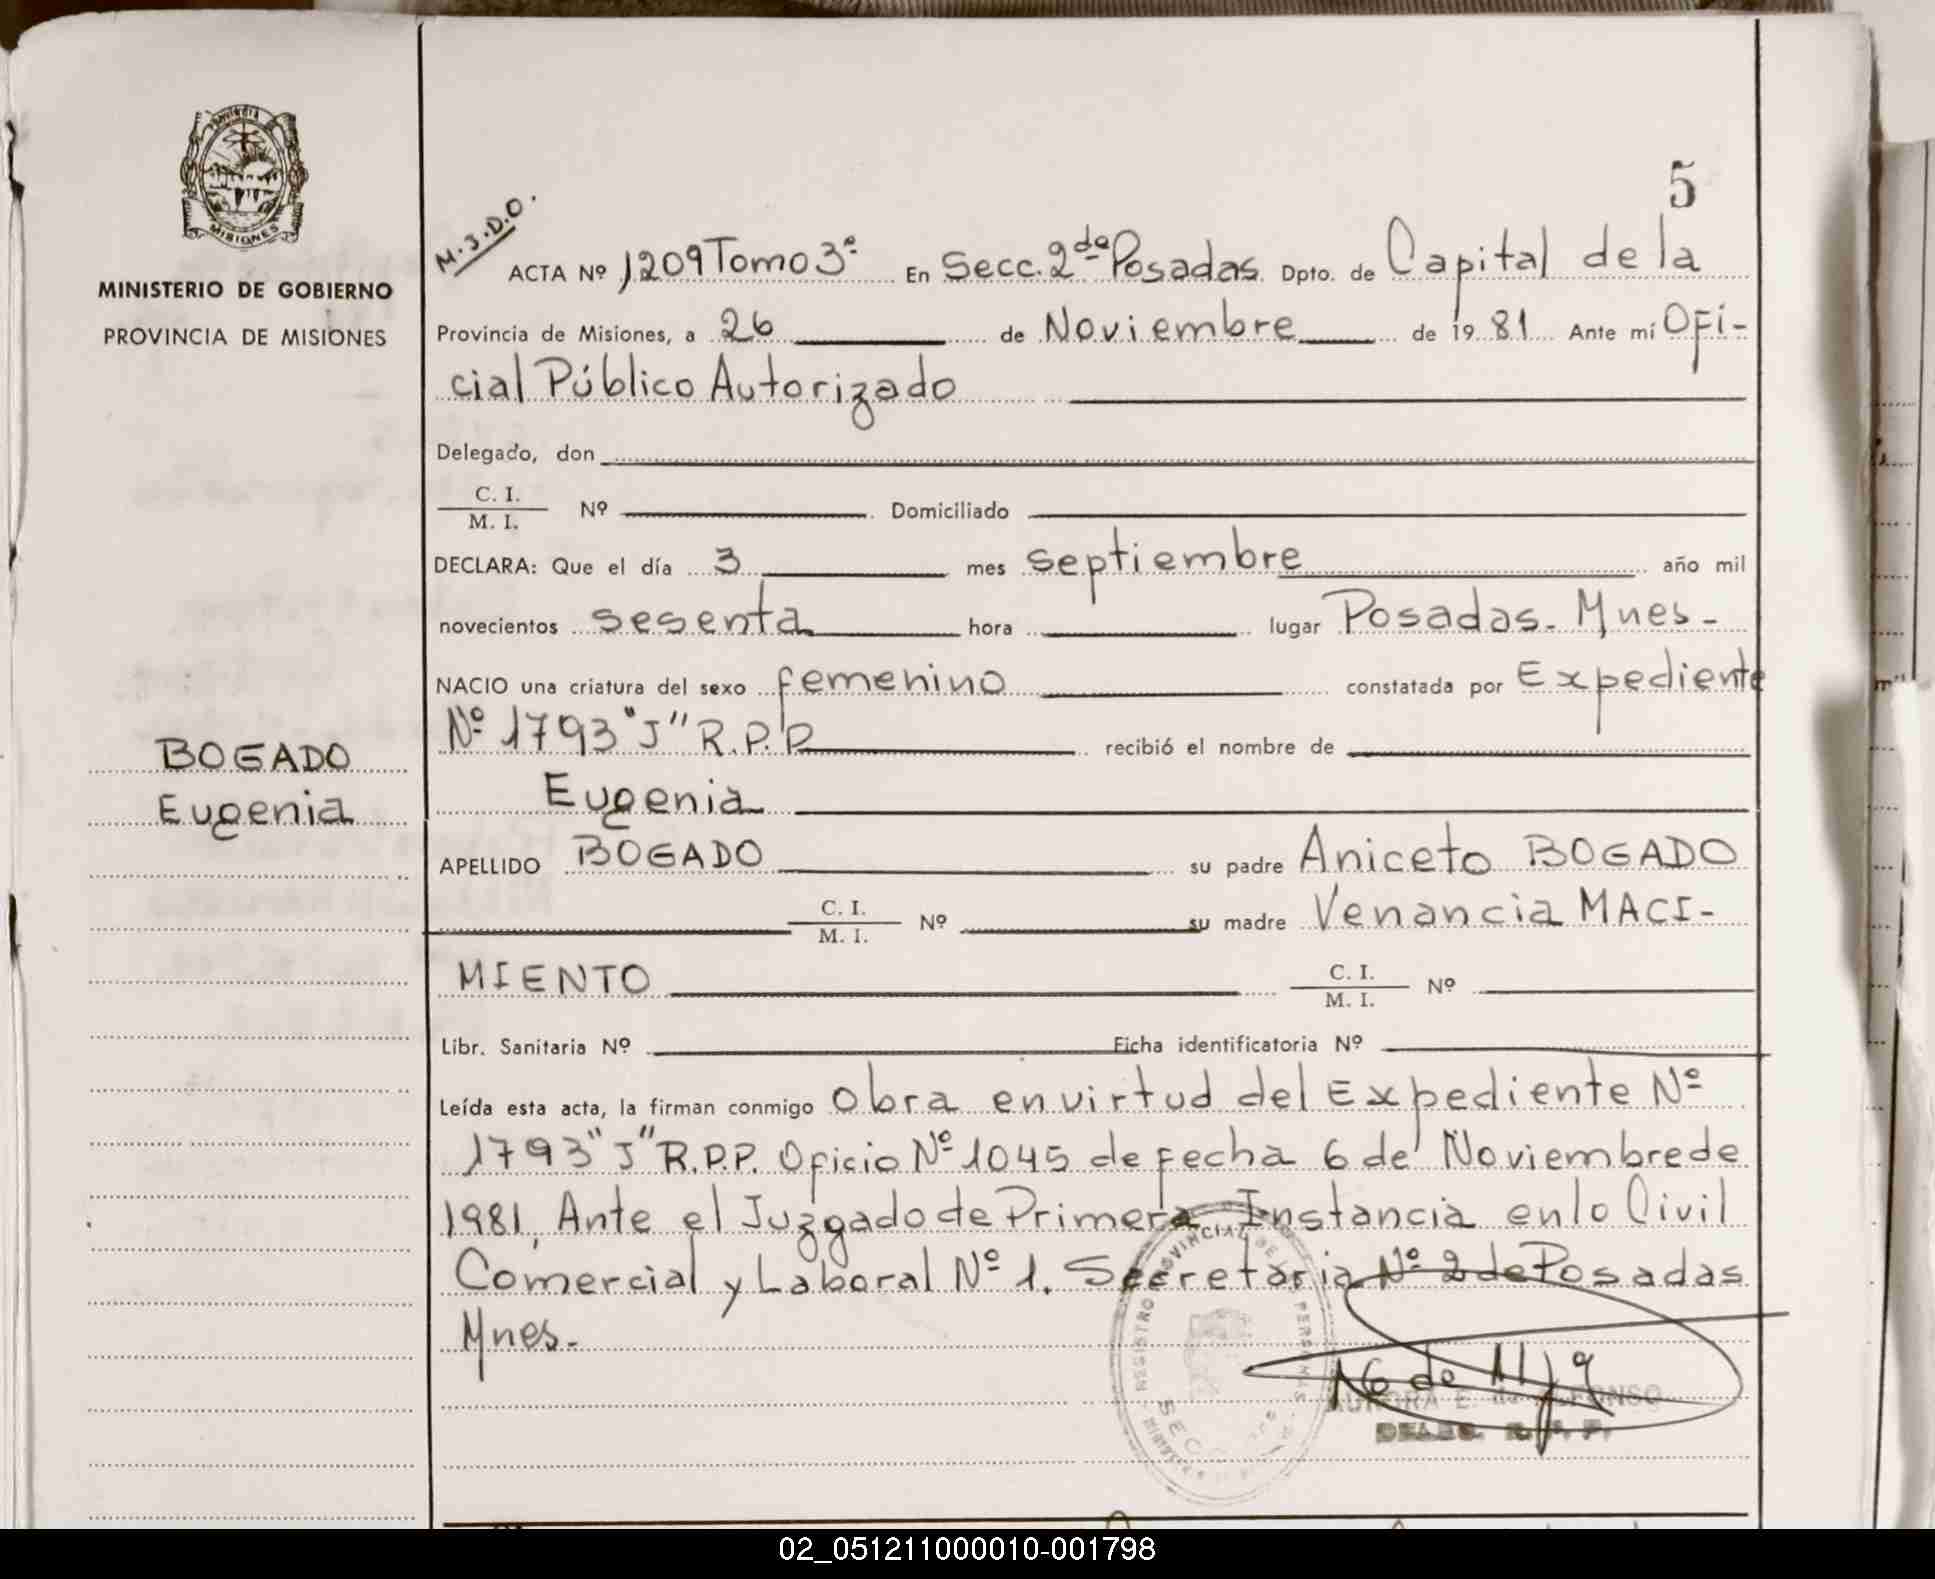 5
PROVINCIA
MISIONES
MINISTERIO DE GOBIERNO
PROVINCIA DE MISIONES
M.J.D.O.
ACTA Nº 1209 Tomo 3º En Secc. 2da Posadas Dpto. de Capital de la
Provincia de Misiones, a 26 de Noviembre de 1981 Ante mí Ofi-
cial Público Autorizado
Delegado, don
C. I.
M. I. Nº Domiciliado
DECLARA: Que el día 3 mes septiembre año mil
novecientos sesenta hora lugar Posadas. Mnes-
NACIO una criatura del sexo femenino constatada por Expediente
Nº 1793 "J" R.P.P recibió el nombre de
BOGADO
Eugenia
Eugenia
APELLIDO BOGADO su padre Aniceto BOGADO
C. I.
M. I. Nº su madre Venancia MACI-
MIENTO C. I.
M. I. Nº
Libr. Sanitaria Nº Ficha identificatoria Nº
Leída esta acta, la firman conmigo Obra en virtud del Expediente Nº
1793 "J" R.P.P. Oficio Nº 1045 de fecha 6 de Noviembre de
1981, Ante el Juzgado de Primera Instancia en lo Civil
Comercial y Laboral Nº 1. Secretaria Nº 2 de Posadas
Mnes.-
REGISTRO PROVINCIAL DE PERSONAS
AURORA E. de ALFONSO
DELEG. R. P. P.
02_051211000010-001798